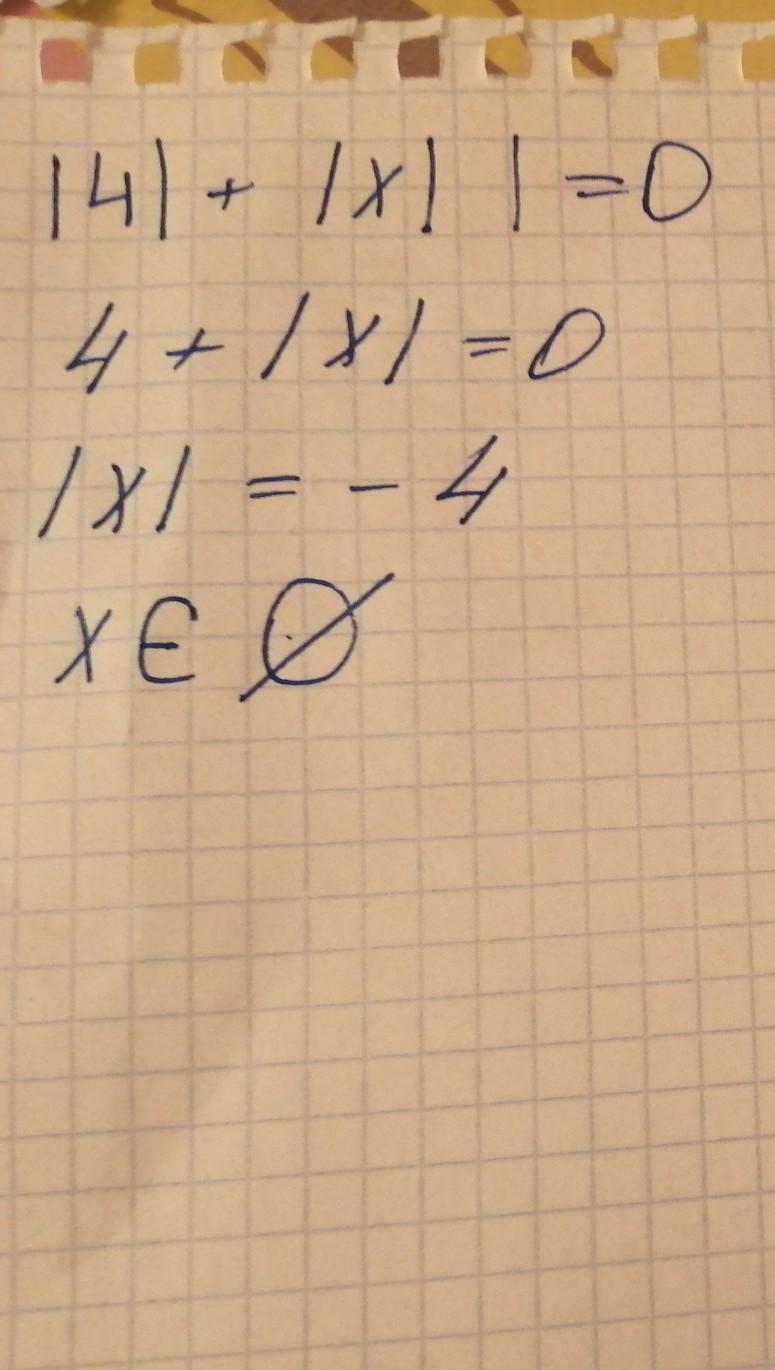 |4| + |x| | = 0
4 + |x| = 0
|x| = - 4
x ∈ ∅